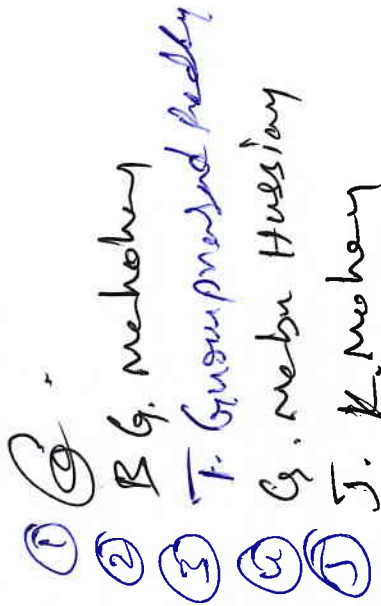 ①
② B G. Mehohan
③ T. Guruprasad Reddy
④ G. Mabu Hussian
⑤ J. K. Mohan